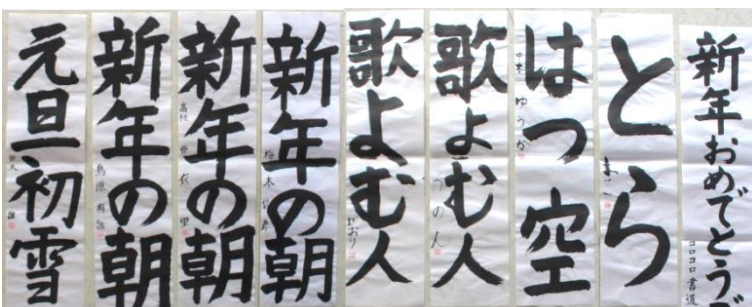 新年おめでとうご
コロコロ書道
とら
はつ空
ゆうか
歌よむ人
歌よむ人
新年の朝
新年の朝
新年の朝
元旦初雪